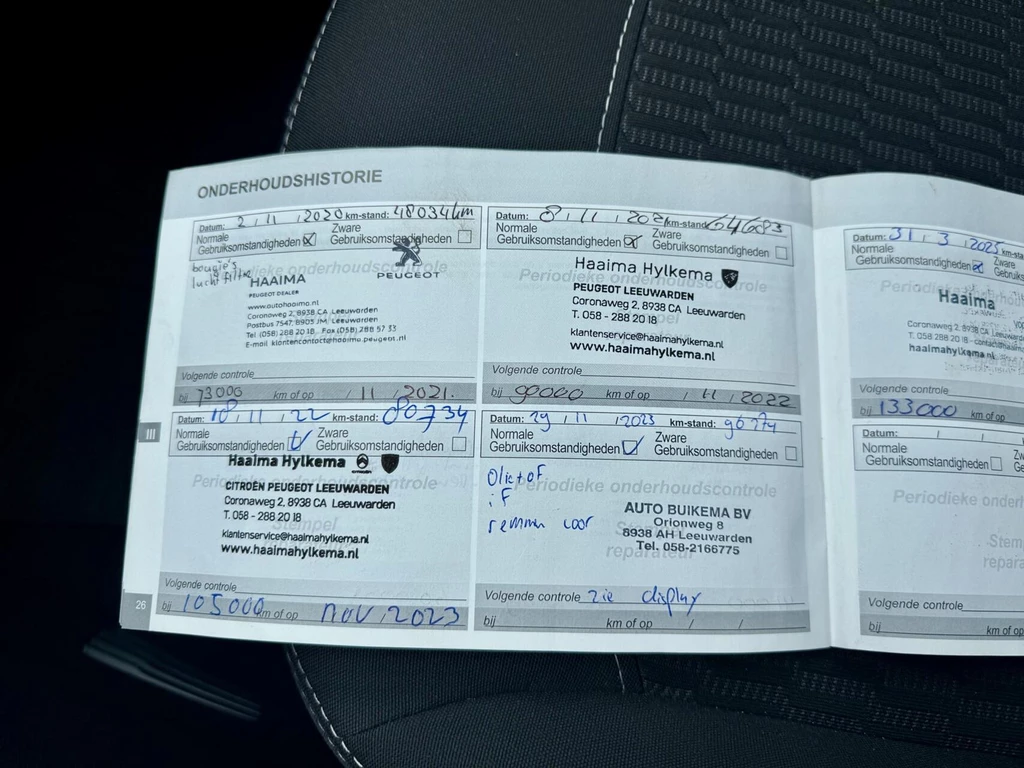 ONDERHOUDSHISTORIE
Datum: 2 / 11 / 2020 km-stand: 48034 km
Normale
Gebruiksomstandigheden
Zware
Gebruiksomstandigheden
bougie's
luchtfilter
Periodieke onderhoudscontrole
HAAIMA
PEUGEOT DEALER
PEUGEOT
www.autohaaima.nl
Coronaweg 2, 8938 CA Leeuwarden
Postbus 7547, 8903 JM Leeuwarden
Tel (058) 288 20 18 Fax (058) 288 57 33
E-mail klantencontact@haaima.peugeot.nl
Volgende controle
bij 73000 km of op / 11 / 2021.
Datum: 8 / 11 / 2021 km-stand: 64683
Normale
Gebruiksomstandigheden
Zware
Gebruiksomstandigheden
Haaima Hylkema
Periodieke onderhoudscontrole
PEUGEOT LEEUWARDEN
Coronaweg 2, 8938 CA Leeuwarden
T. 058 - 288 20 18
klantenservice@haaimahylkema.nl
www.haaimahylkema.nl
Volgende controle
bij 90000 km of op / 11 / 2022
III
Datum: 18 / 11 / 22 km-stand: 80734
Normale
Gebruiksomstandigheden
Zware
Gebruiksomstandigheden
Haaima Hylkema
Periodieke onderhoudscontrole
CITROËN PEUGEOT LEEUWARDEN
Coronaweg 2, 8938 CA Leeuwarden
T. 058 - 288 20 18
Stempel
klantenservice@haaimahylkema.nl
www.haaimahylkema.nl
Volgende controle
bij 105000 km of op nov / 2023
26
Datum: 29 / 11 / 2023 km-stand: 96274
Normale
Gebruiksomstandigheden
Zware
Gebruiksomstandigheden
Olie + oF
iF
remmen voor
Periodieke onderhoudscontrole
AUTO BUIKEMA BV
Orionweg 8
8938 AH Leeuwarden
Tel. 058-2166775
reparateur
Volgende controle zie display
bij km of op / /
Datum: 31 / 3 / 2025 km-sta
Normale
Gebruiksomstandigheden
Zware
Gebruiks
Haaima
Coronaweg 2, 8938 CA Leeuwarden
T. 058 288 20 18 - contact@haaim
haaimahylkema.nl
Volgende controle
bij 133000 km of op
Datum: / / km-sta
Normale
Gebruiksomstandigheden
Zware
Gebruiks
Periodieke onder
Stem
repara
Volgende controle
bij km of op